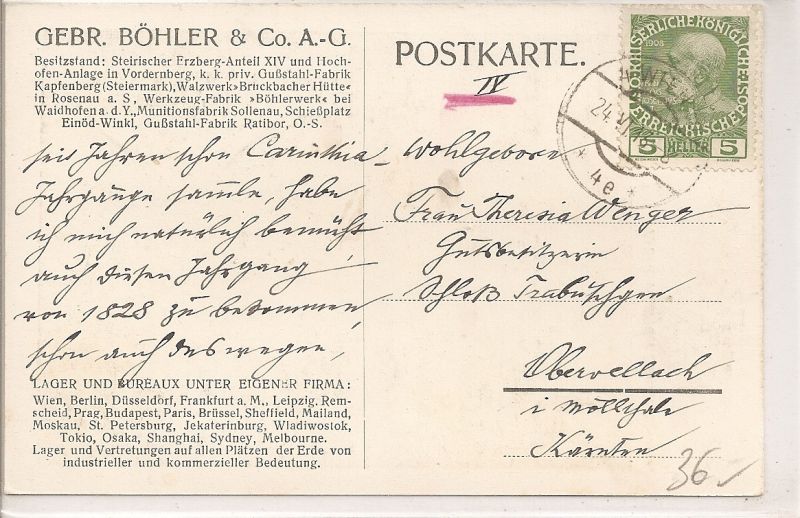 GEBR. BÖHLER & Co. A.-G.
Besitzstand: Steirischer Erzberg-Anteil XIV und Hoch-
ofen-Anlage in Vordernberg, k. k. priv. Gußstahl-Fabrik
Kapfenberg (Steiermark), Walzwerk »Bruckbacher Hütte«
in Rosenau a. S., Werkzeug-Fabrik »Böhlerwerk« bei
Waidhofen a. d. Y., Munitionsfabrik Sollenau, Schießplatz
Einöd-Winkl, Gußstahl-Fabrik Ratibor, O.-S.
seit Jahren schon Carinthia
Jahrgänge sammle, habe
ich mich natürlich bemüht
auch diesen Jahrgang
von 1828 zu bekommen,
schon auch deswegen,
LAGER UND BUREAUX UNTER EIGENER FIRMA:
Wien, Berlin, Düsseldorf, Frankfurt a. M., Leipzig, Rem-
scheid, Prag, Budapest, Paris, Brüssel, Sheffield, Mailand,
Moskau, St. Petersburg, Jekaterinburg, Wladiwostok,
Tokio, Osaka, Shanghai, Sydney, Melbourne.
Lager und Vertretungen auf allen Plätzen der Erde von
industrieller und kommerzieller Bedeutung.
POSTKARTE.
IV
Wohlgeboren
Frau Theresia Wenger
Gutsbesitzerin
Schloß Trabuschgen
Obervellach
i Möllthale
Kärnten
36
KAISERLICHE KÖNIGLICHE
ÖSTERREICHISCHE
1908
5 HELLER 5
24
* 4e *